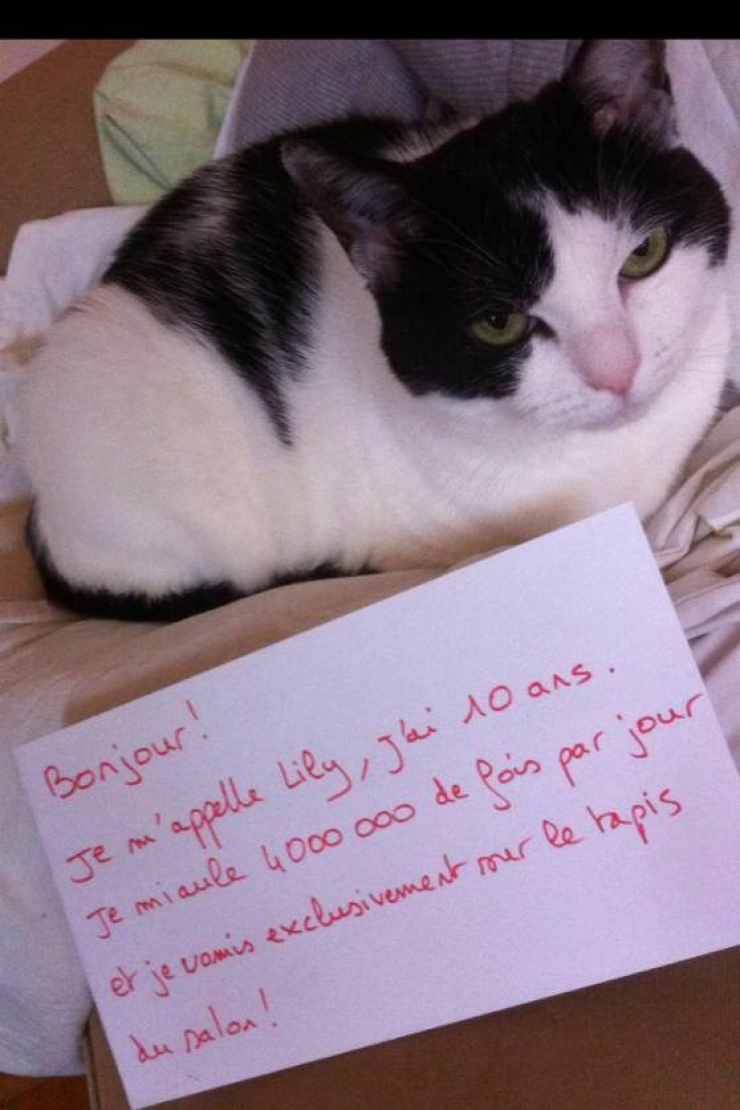 Bonjour!
Je m'appelle Lily, j'ai 10 ans.
Je miaule 4000 000 de fois par jour
et je vomis exclusivement sur le tapis
du salon!